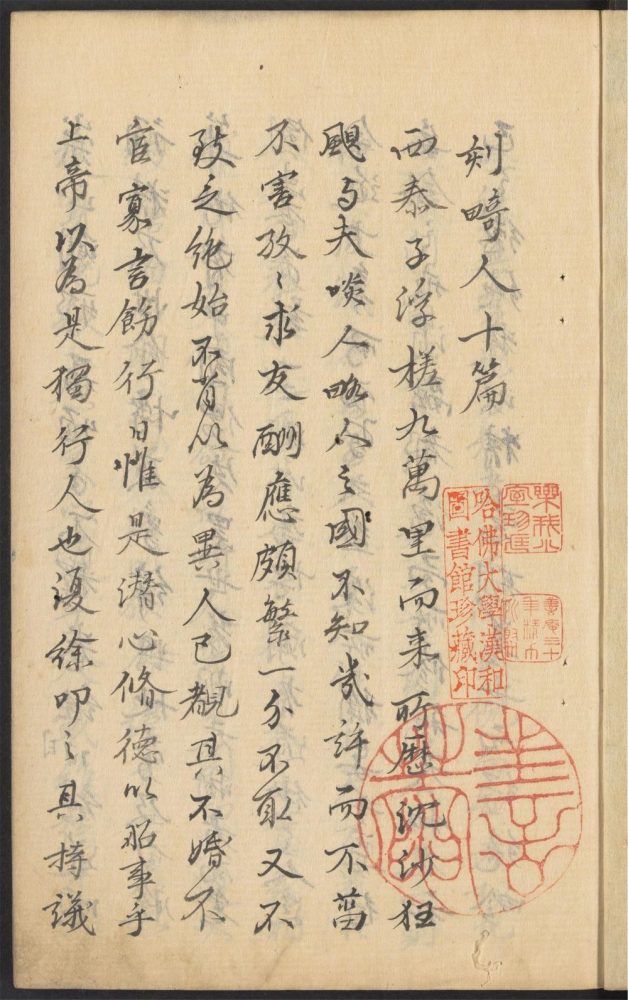 刻畸人十篇
西泰子浮槎九萬里而来所歷沈沙狂
颶与夫啖人略人之國不知幾許而不菑
不害孜〻求友酬應頗繁一介不取又不
致乏絶始不肖以為異人已覩其不婚不
宦寡言飭行日惟是潜心脩德以昭事乎
上帝以為是獨行人也復徐叩之其持議
哈佛大學漢和
圖書館珍藏印